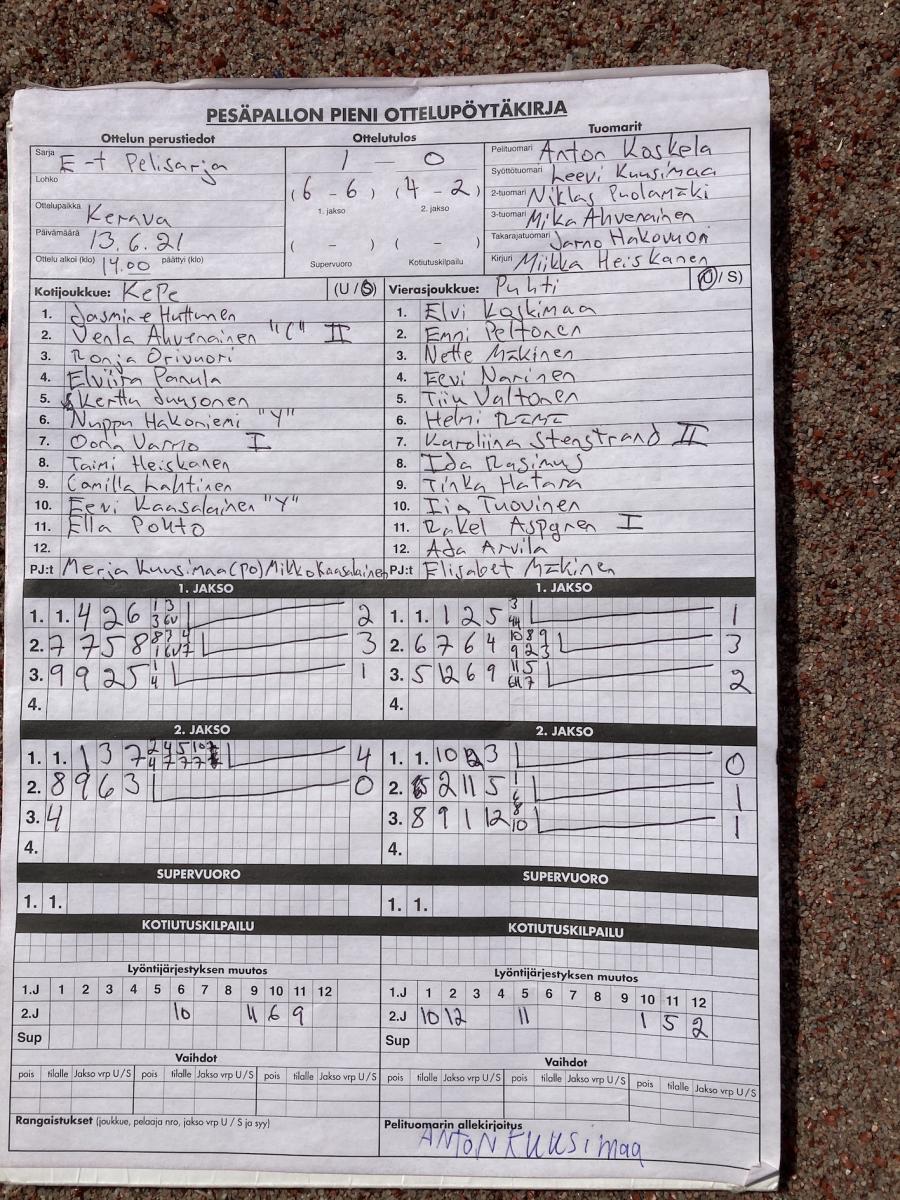 PESÄPALLON PIENI OTTELUPÖYTÄKIRJA
Ottelun perustiedot
Sarja E-t Pelisarja
Lohko
Ottelupaikka Kerava
Päivämäärä 13.6.21
Ottelu alkoi (klo) 14.00 päättyi (klo)
Ottelutulos
1 — 0
(6 - 6) (4 - 2)
1. jakso 2. jakso
( - ) ( - )
Supervuoro Kotiutuskilpailu
Tuomarit
Pelituomari Anton Koskela
Syöttötuomari Leevi Kuusimaa
2-tuomari Niklas Puolamäki
3-tuomari Mika Ahvenainen
Takarajatuomari Jarno Hakovuori
Kirjuri Miikka Heiskanen
Kotijoukkue: KePe (U / S)
1. Jasmine Huttunen
2. Venla Ahvenainen "C" II
3. Ronja Orivuori
4. Elviira Panula
5. Kerttu Juusonen
6. Nuppu Hakoniemi "Y"
7. Oona Varmo I
8. Taimi Heiskanen
9. Camilla Lahtinen
10. Eevi Kaasalainen "Y"
11. Ella Pohto
12.
PJ:t Merja Kuusimaa (PO) Mikko Kaasalainen
Vierasjoukkue: Puhti (U / S)
1. Elvi Koskimaa
2. Emni Peltonen
3. Nette Mäkinen
4. Eevi Narinen
5. Tiiu Valtonen
6. Helmi Rämä
7. Karoliina Stenstrand II
8. Ida Rasimus
9. Tinka Hatara
10. Iia Tuovinen
11. Rakel Aspgren I
12. Ada Arvila
PJ:t Elisabet Mäkinen
1. JAKSO
1. 1. 4 2 6 1 3 2
3 6V
2. 7 7 5 8 8 3 4 3
1 6V 7
3. 9 9 2 5 1 1
4
4.
1. JAKSO
1. 1. 1 2 5 3 1
2. 6 7 6 4 10 8 9 3
9 2 3
3. 5 12 6 9 11 5 2
7
4.
2. JAKSO
1. 1. 1 3 7 2 4 5 10 4
4 7 7 7
2. 8 9 6 3 0
3. 4
4.
2. JAKSO
1. 1. 10 3 0
2. 2 11 5 1 1
6
3. 8 9 1 12 8 1
10
4.
SUPERVUORO
1. 1.
SUPERVUORO
1. 1.
KOTIUTUSKILPAILU
KOTIUTUSKILPAILU
Lyöntijärjestyksen muutos
1.J 1 2 3 4 5 6 7 8 9 10 11 12
2.J 10 11 6 9
Sup
Lyöntijärjestyksen muutos
1.J 1 2 3 4 5 6 7 8 9 10 11 12
2.J 10 12 11 1 5 2
Sup
Vaihdot
pois tilalle Jakso vrp U/S pois tilalle Jakso vrp U/S pois tilalle Jakso vrp U/S
Vaihdot
pois tilalle Jakso vrp U/S pois tilalle Jakso vrp U/S pois tilalle Jakso vrp U/S
Rangaistukset (joukkue, pelaaja nro, jakso vrp U / S ja syy)
Pelituomarin allekirjoitus
ANTON KUUSIMAA